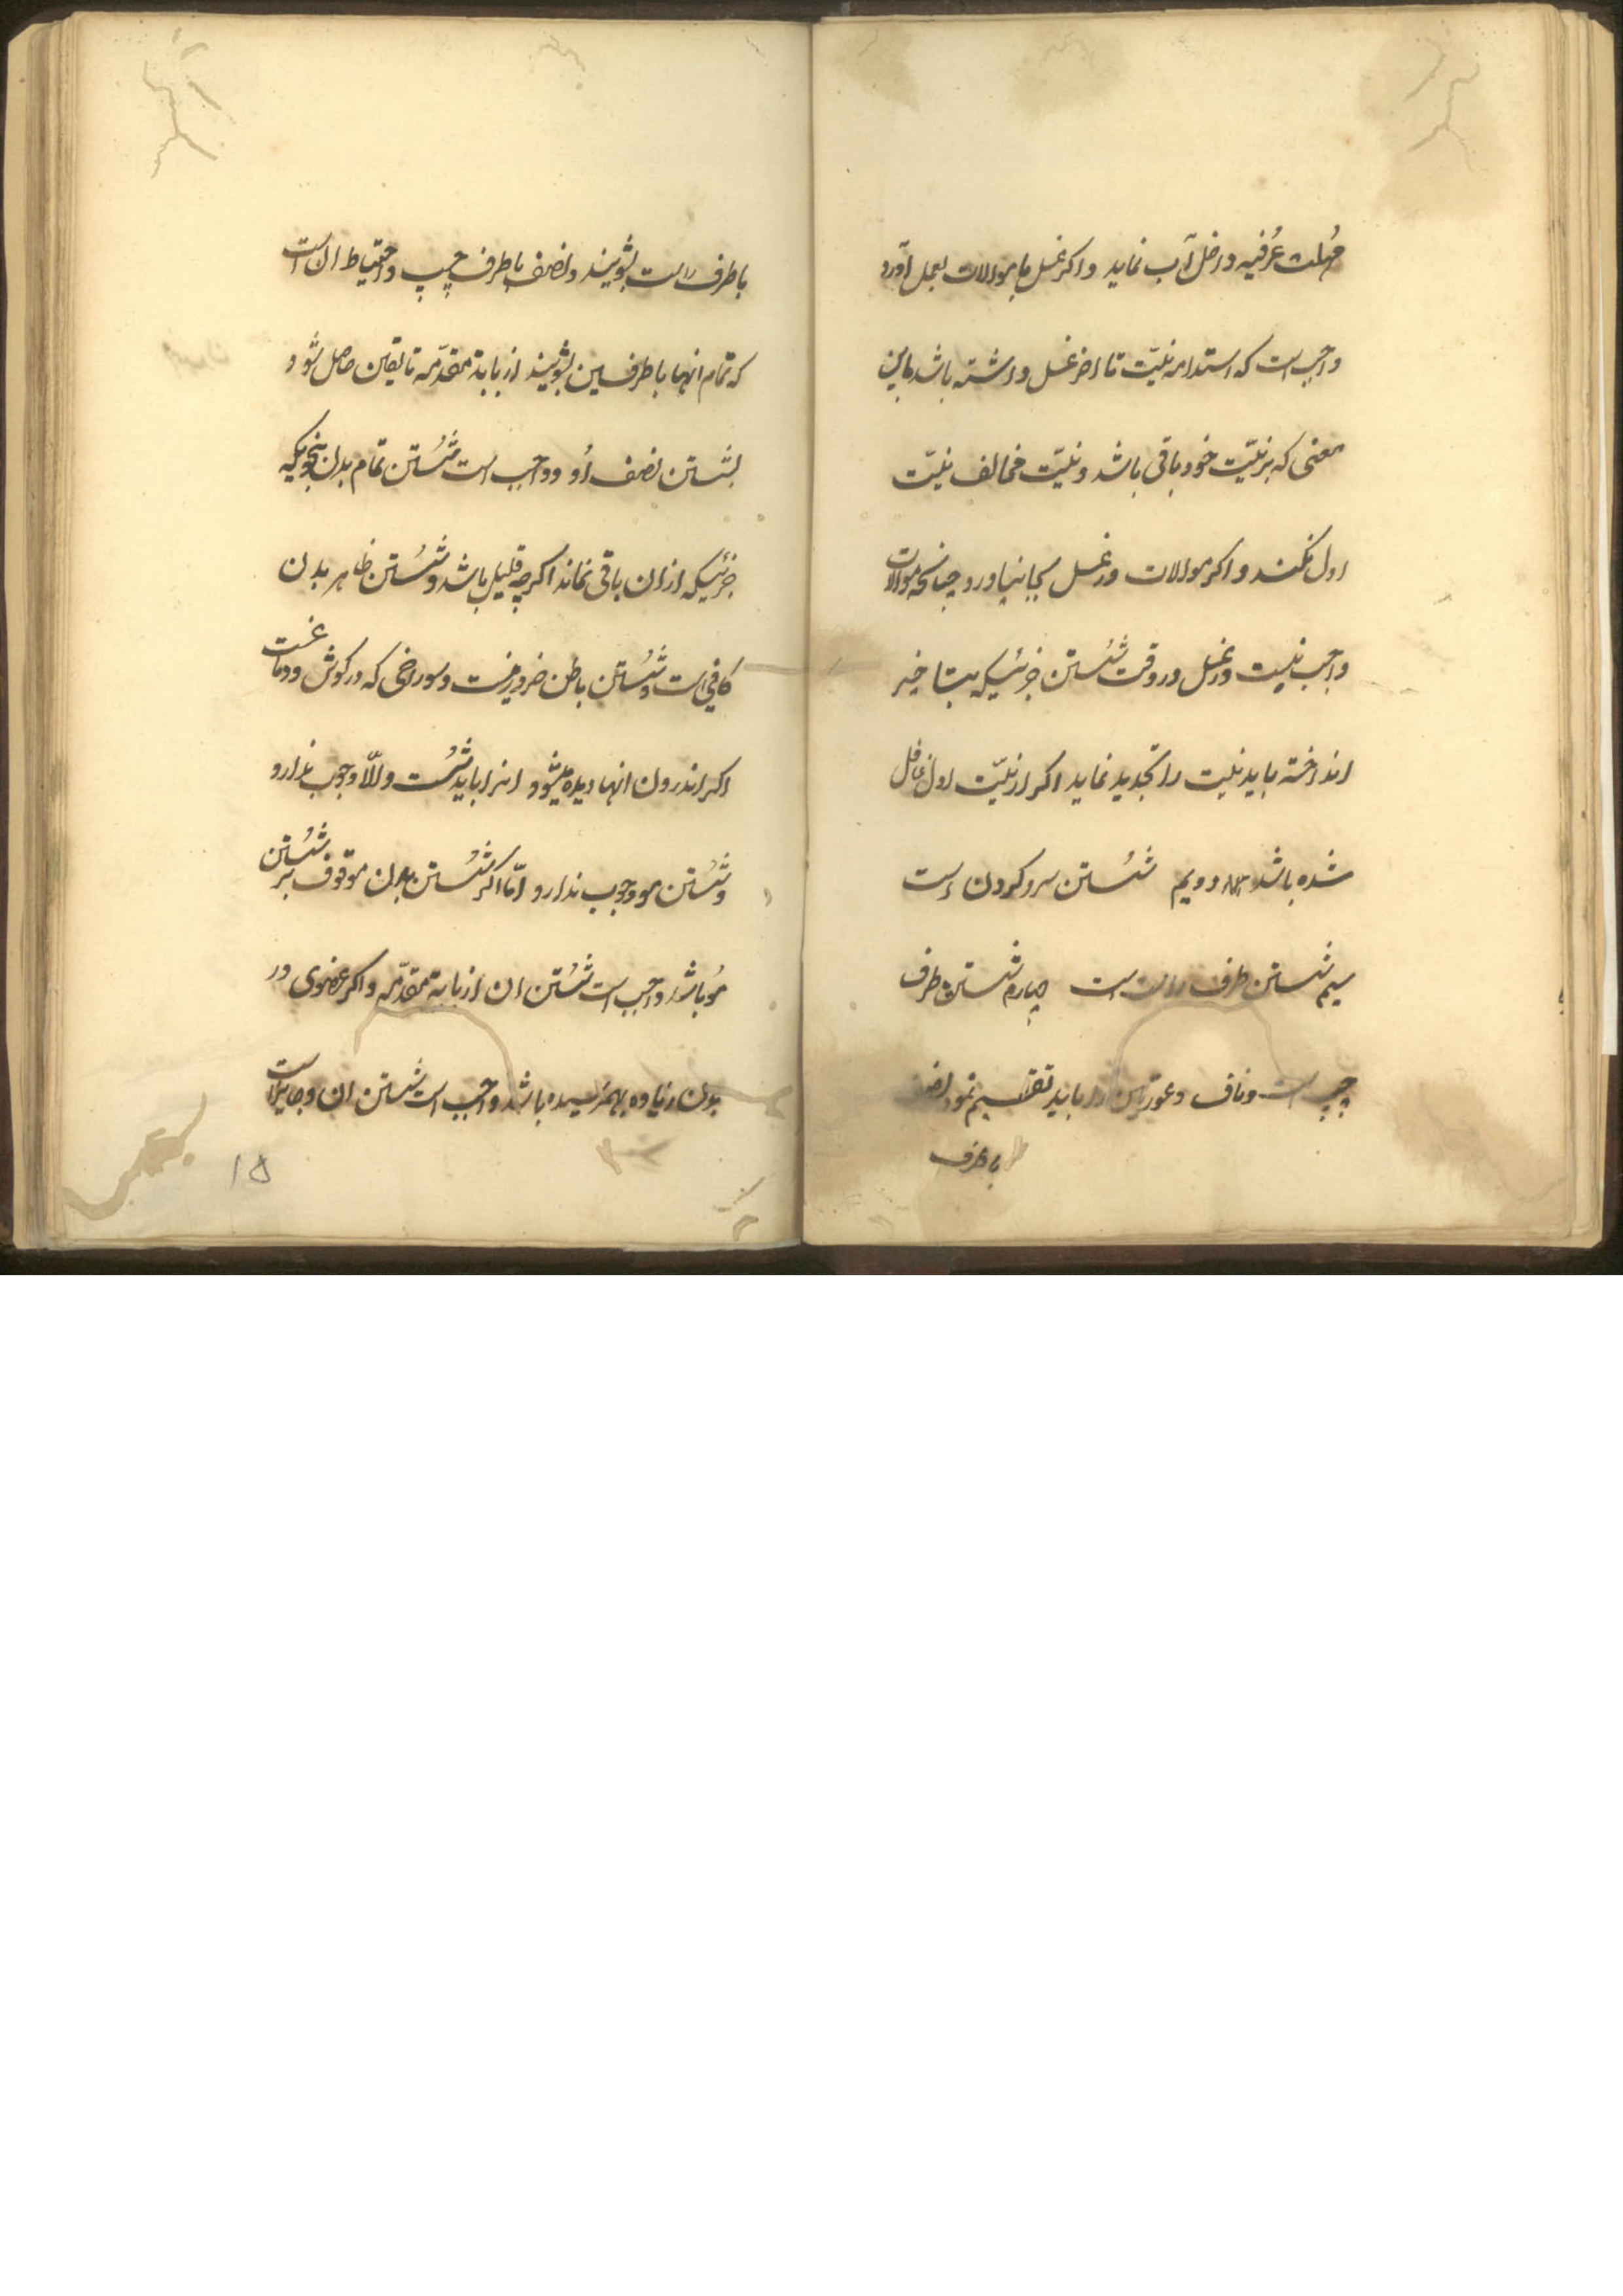 مُهلت عُرفیه داخل آب نماید و اکر غسل با موالات بعمل آورد
واجب است که استدامه نیّت تا اخر غسل داشته باشد باین
معنی که بر نیّت خود باقی باشد و نیّت مخالف نیّت
اول نکند و اکر موالات در غسل بجا نیاورد چنانچه موالات
واجب نیست در غسل در وقت شُستن جزئیکه بتاخیر
انداخته باید نیت را تجدید نماید اکر از نیّت اول غافل
شده باشد دویم شُستن سر و کردن است
سیم شستن طرف راست است چهارم شستن طرف
چپ است و ناف و عورتین را باید تقسیم نمود نصف
با طرف
با طرف راست بشویند و نصف با طرف چپ و احتیاط ان است
که تمام انها با طرفین بشویند از بابة مقدّمه تا یقین حاصل شود
بشستن نصف اُو و واجب است شُستن تمام بدن بنحویکه
جزئیکه از ان باقی نماند اکرچه قلیل باشد و شُستن ظاهر بدن
کافی است و شُستن باطن ضرور نیست و سوراخی که در کوش و دماغست
اکر اندرون انها دیده میشود انرا باید شُست و الّا وجوب ندارد
و شُستن مو وجوب ندارد امّا اکر شُستن بدن موقوف بر شُستن
مُو باشد واجب است شُستن ان از بابة مقدّمه و اکر عضوی در
بدن زیاده بهمرسیده باشد واجب است شستن ان و جایز است
۱۵